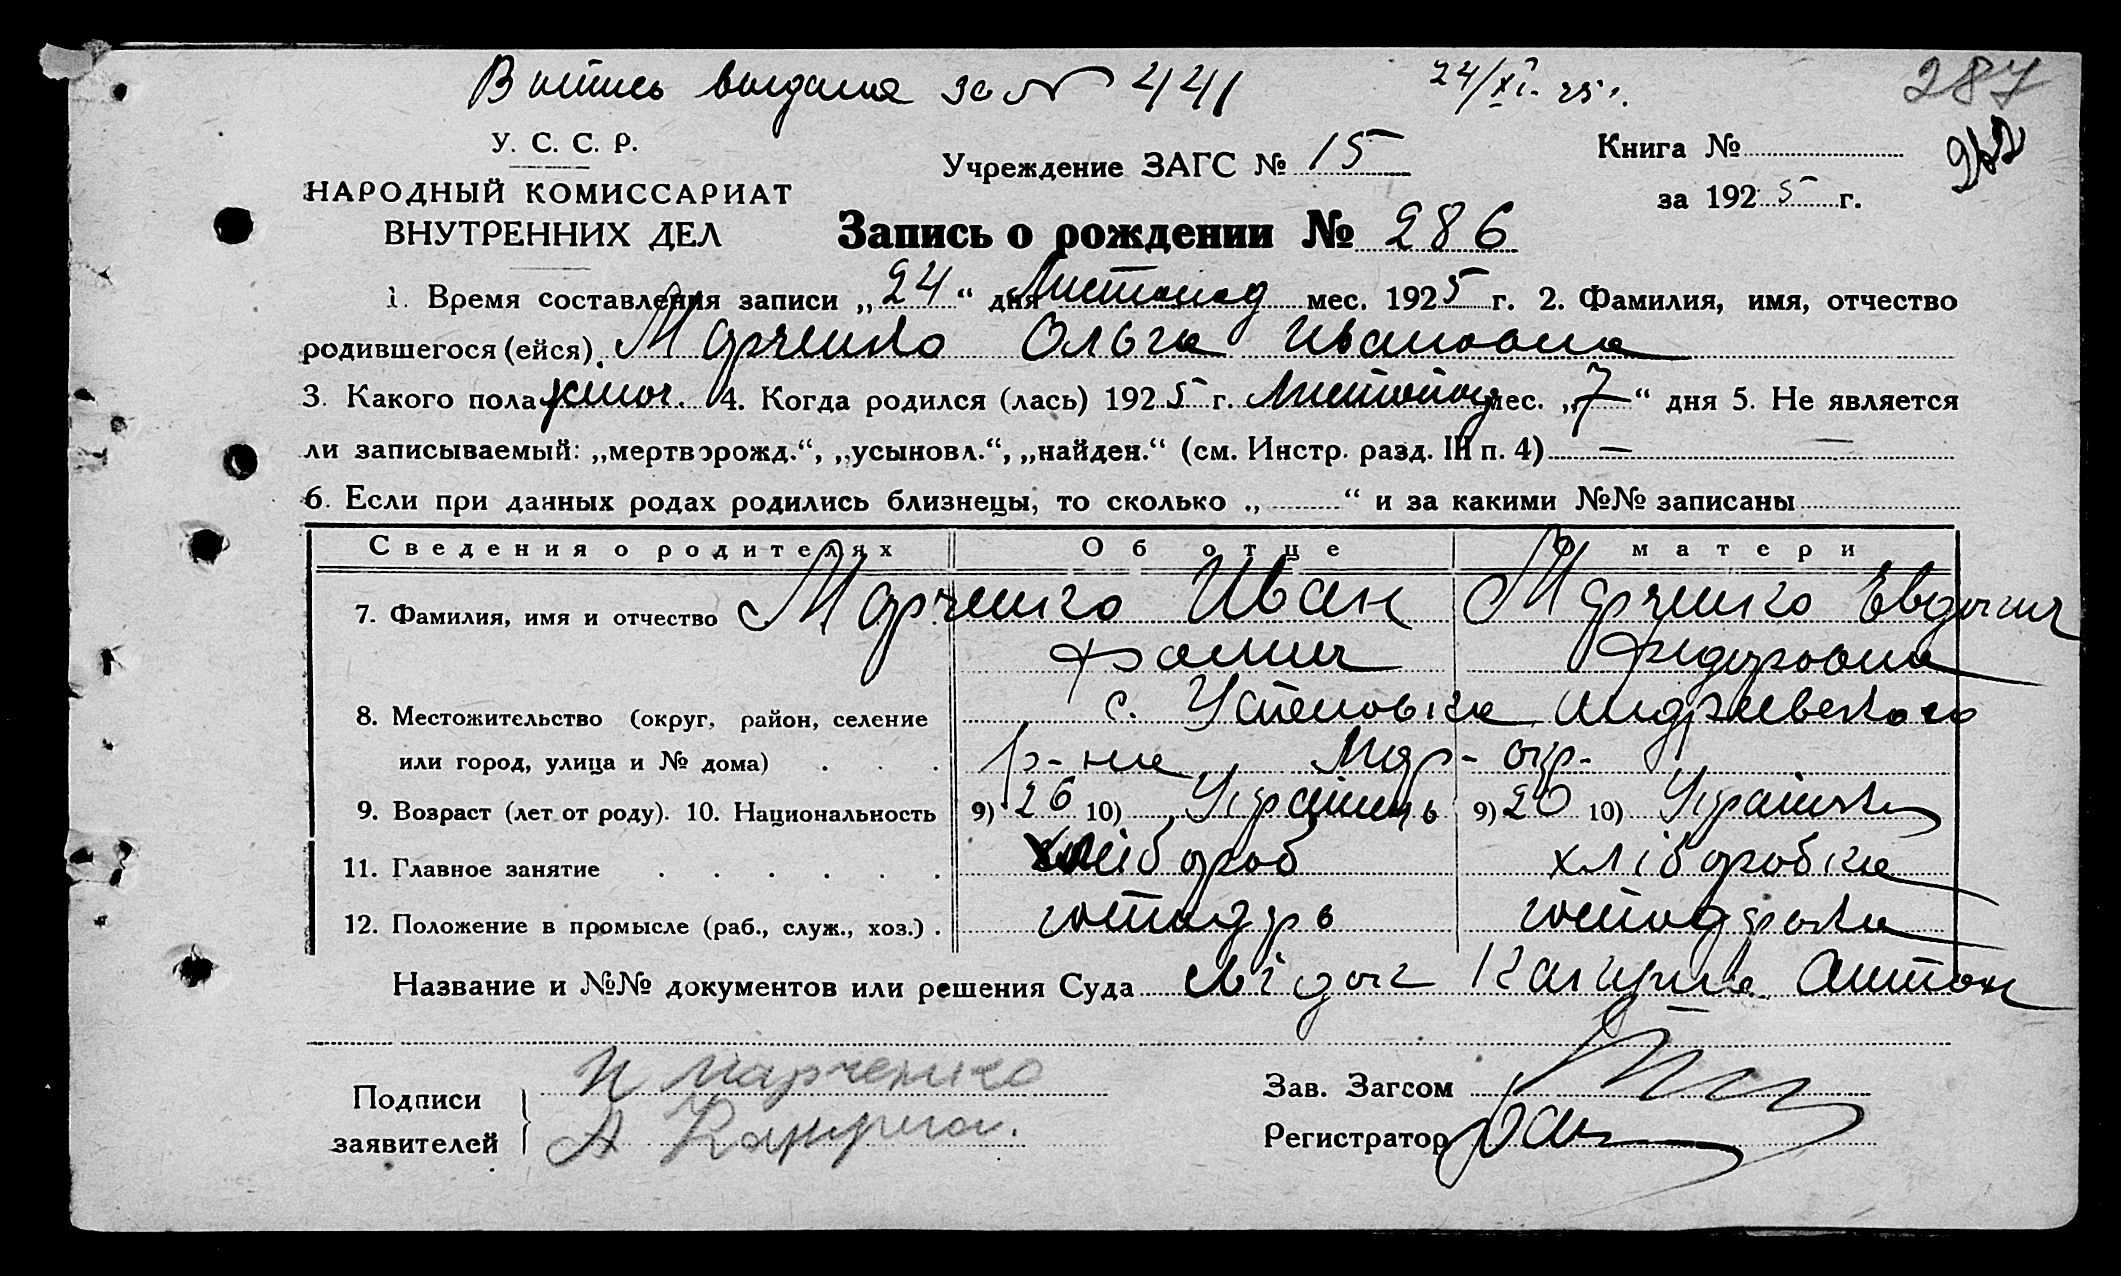 Витпись выдана за № 441 24/XI-25 г. 287
У. С. С. Р.
Учреждение ЗАГС № 15
Книга №
НАРОДНЫЙ КОМИССАРИАТ
ВНУТРЕННИХ ДЕЛ
за 1925 г.
Запись о рождении № 286
1. Время составления записи „24“ дня Листопад мес. 1925 г. 2. Фамилия, имя, отчество
родившегося (ейся) Марченко Ольга Ивановна
3. Какого пола жіноч. 4. Когда родился (лась) 1925 г. Листопад мес. „7“ дня 5. Не является
ли записываемый: „мертворожд.“, „усыновл.“, „найден.“ (см. Инстр. разд. III п. 4) —
6. Если при данных родах родились близнецы, то сколько „ “ и за какими №№ записаны
Сведения о родителях Об отце О матери
7. Фамилия, имя и отчество Марченко Иван Марченко Евдокия
Фомич Федоровна
8. Местожительство (округ, район, селение с. Успеновка Андреевского
или город, улица и № дома) р-на Мар- окр-
9. Возраст (лет от роду). 10. Национальность 9) 26 10) Українець 9) 20 10) Українка
11. Главное занятие хлібороб хліборобка
12. Положение в промысле (раб., служ., хоз.) господарь господарка
Название и №№ документов или решения Суда свідок Антон
Подписи И Марченко Зав. Загсом
заявителей А Регистратор